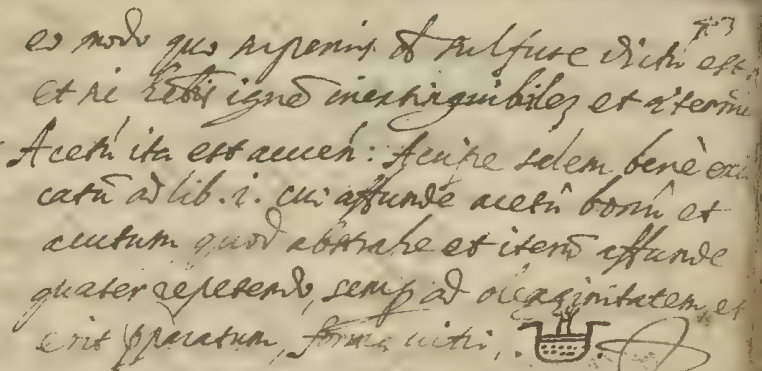 eo modo quo superius de sulfure dictū est.
Et sic hēbis ignē inextinguibilez et æternū
Acetū ita est acuen: Accipe salem benè exic
catū ad lib. i. cui affunde acetū bonū et
acutum quod abstrahe et iterū affunde
quater repetendo, semp ad oleaginitatem, et
erit pparatum, forma vitri,